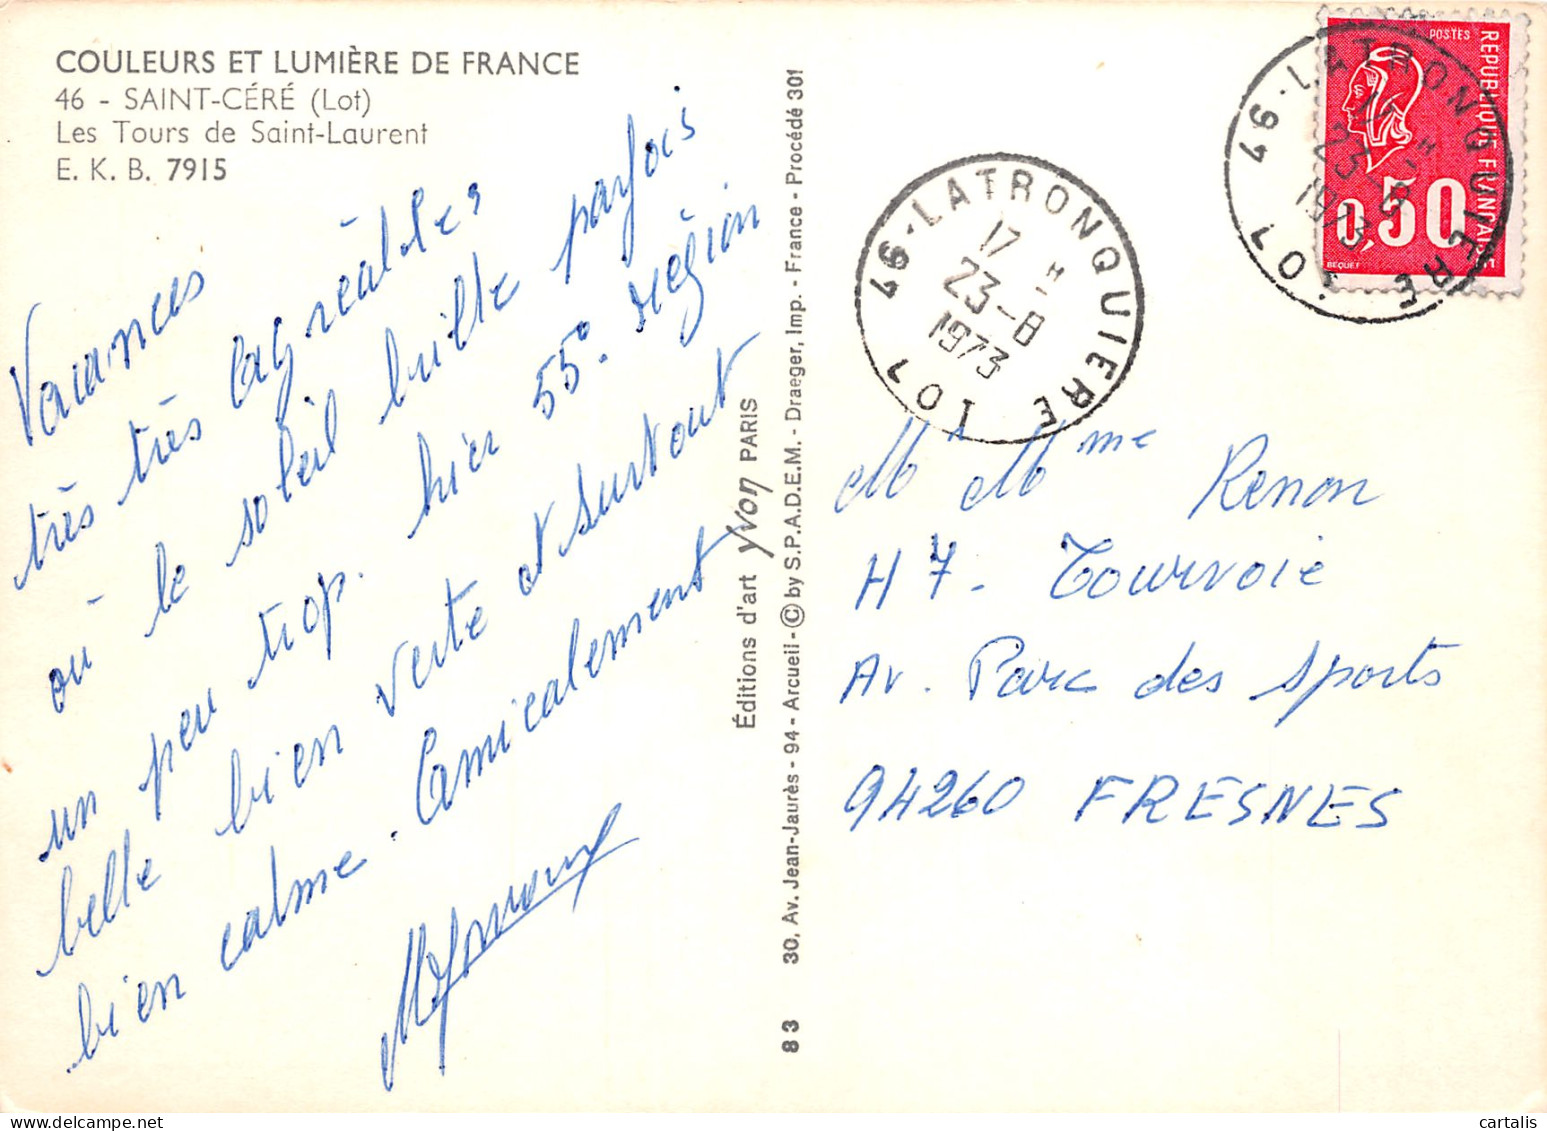 COULEURS ET LUMIÈRE DE FRANCE
46 - SAINT-CÉRÉ (Lot)
Les Tours de Saint-Laurent
E. K. B. 7915
Vacances
très très agréables
où le soleil brille parfois
un peu trop. hier 55°. région
belle bien verte et surtout
bien calme. Amicalement
Éditions d'art yvon PARIS
30, Av. Jean-Jaurès - 94 - Arcueil - © by S.P.A.D.E.M. - Draeger, Imp. - France - Procédé 301
83
46 - LATRONQUIERE
LOT
17 H
23-8
1973
POSTES
REPUBLIQUE FRANCAISE
0,50
BEQUET
46 - LATRONQUIERE
LOT
17 H
23-8
1973
Mr Mme Renon
H7 - Tourvoie
Av. Parc des Sports
94260 FRESNES
cartalis